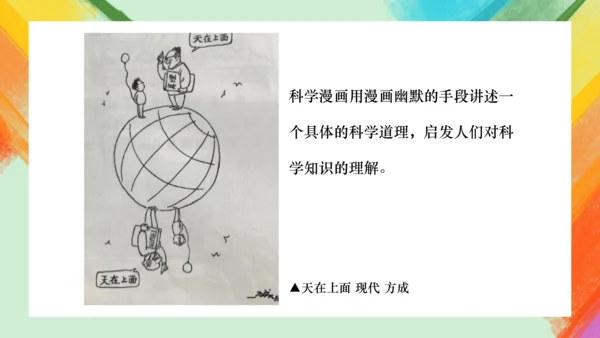 天在上面
科学漫画用漫画幽默的手段讲述一
个具体的科学道理，启发人们对科
学知识的理解。
天在上面
▲天在上面 现代 方成